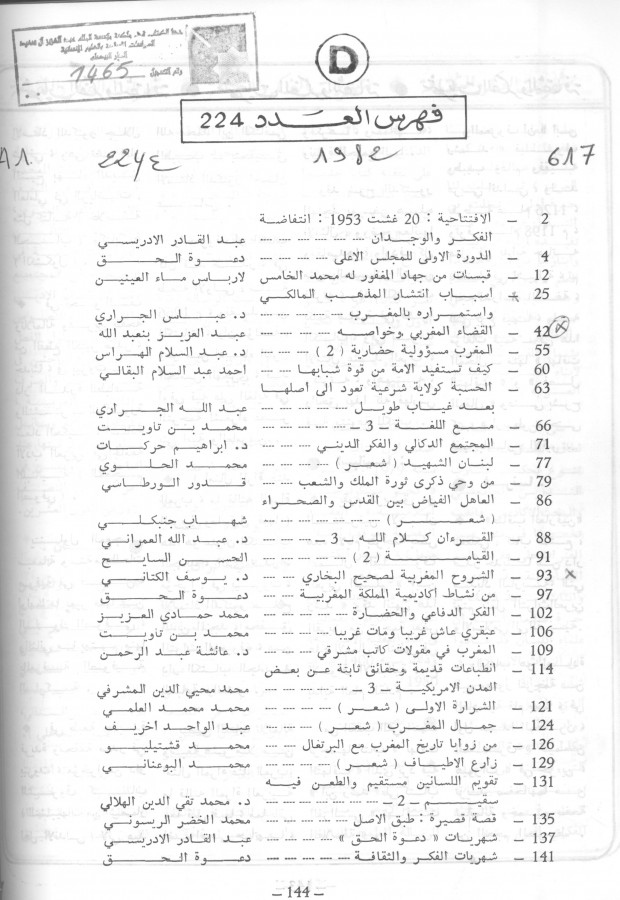 1465
D
فهرس العدد 224
A1. 224ع 1982 617
2 – الافتتاحية : 20 غشت 1953 : انتفاضة
الفكر والوجدان ـــ ـــ ـــ ـــ عبد القادر الادريسي
4 – الدورة الاولى للمجلس الاعلى ـــ ـــ ـــ دعوة الحق
12 – قبسات من جهاد المغفور له محمد الخامس لارباس ماء العينين
25 – اسباب انتشار المذهب المالكي
واستمراره بالمغرب ـــ ـــ ـــ د. عباس الجراري
42 – القضاء المغربي وخواصه ـــ ـــ ـــ عبد العزيز بنعبد الله
55 – المغرب مسؤولية حضارية ( 2 ) ـــ ـــ د. عبد السلام الهراس
60 – كيف تستفيد الامة من قوة شبابها ـــ ـــ احمد عبد السلام البقالي
63 – الحسبة كولاية شرعية تعود الى اصلها
بعد غياب طويل ـــ ـــ ـــ ـــ عبد الله الجراري
66 – مع اللغة – 3 – ـــ ـــ ـــ محمد بن تاويت
71 – المجتمع الدكالي والفكر الديني ـــ ـــ د. ابراهيم حركات
77 – لبنان الشهيد ( شعر ) ـــ ـــ ـــ محمد الحلوي
79 – من وحي ذكرى ثورة الملك والشعب ـــ ـــ قدور الورطاسي
86 – العاهل الفياض بين القدس والصحراء
( شعر ) ـــ ـــ ـــ ـــ ـــ شهاب جنبكلي
88 – القرءان كلام الله – 3 – ـــ ـــ د. عبد الله العمراني
91 – القيامة ( 2 ) ـــ ـــ ـــ ـــ الحسن السايح
93 – الشروح المغربية لصحيح البخاري ـــ ـــ د. يوسف الكتاني
97 – من نشاط اكاديمية المملكة المغربية ـــ ـــ دعوة الحق
102 – الفكر الدفاعي والحضارة ـــ ـــ ـــ محمد حمادي العزيز
106 – عبقري عاش غريبا ومات غريبا ـــ ـــ محمد بن تاويت
109 – المغرب في مقولات كاتب مشرقي ـــ ـــ د. عائشة عبد الرحمن
114 – انطباعات قديمة وحقائق ثابتة عن بعض
المدن الامريكية – 3 – ـــ ـــ ـــ محمد محيي الدين المشرفي
121 – الشرارة الاولى ( شعر ) ـــ ـــ ـــ محمد محمد العلمي
124 – جمال المغرب ( شعر ) ـــ ـــ ـــ عبد الواحد اخريف
126 – من زوايا تاريخ المغرب مع البرتغال ـــ ـــ محمد قشتيليو
129 – زارع الاطياف ( شعر ) ـــ ـــ ـــ محمد البوعناني
131 – تقويم اللسانين مستقيم والطعن فيه
سقيم – 2 – ـــ ـــ ـــ ـــ د. محمد تقي الدين الهلالي
135 – قصة قصيرة : طبق الاصل ـــ ـــ ـــ محمد الخضر الريسوني
137 – شهريات « دعوة الحق » ـــ ـــ ـــ عبد القادر الادريسي
141 – شهريات الفكر والثقافة ـــ ـــ ـــ دعوة الحق
– 144 –